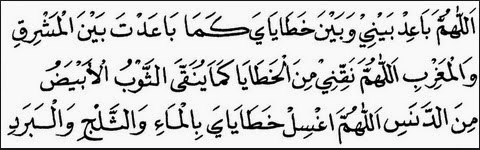 اَللّٰهُمَّ بَاعِدْ بَيْنِيْ وَبَيْنَ خَطَايَايَ كَمَا بَاعَدْتَ بَيْنَ الْمَشْرِقِ
وَالْمَغْرِبِ اَللّٰهُمَّ نَقِّنِيْ مِنَ الْخَطَايَا كَمَا يُنَقَّى الثَّوْبُ الْأَبْيَضُ
مِنَ الدَّنَسِ اَللّٰهُمَّ اغْسِلْ خَطَايَايَ بِالْمَاءِ وَالثَّلْجِ وَالْبَرَدِ